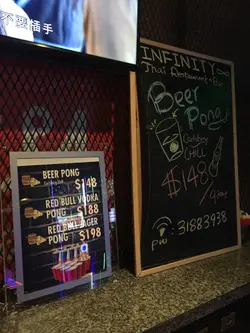 不要插手
INFINITY
Thai Restaurant + Bar
Beer
Pong
Carlsberg
CHILL
$148
PW: 31883938
BEER PONG
$148
RED BULL VODKA
PONG
$188
RED BULL JAGER
PONG
$198